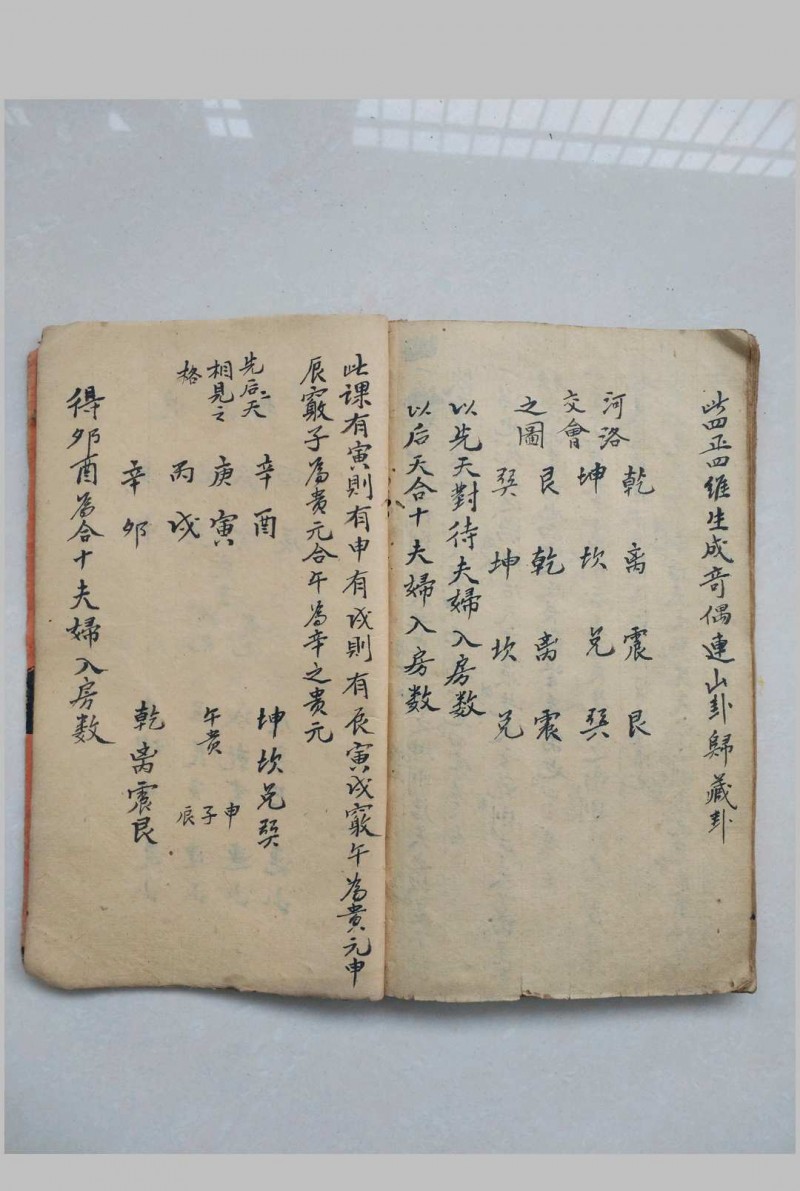 此四正四維生成奇偶連山卦歸藏卦
河洛
交會
之圖
乾离震艮
坤坎兑巽
艮乾离震
巽坤坎兑
以先天對待夫婦入房数
以后天合十夫婦入房数
此課有寅則有申有戌則有辰寅戌竅午為貴元申
辰竅子為貴元合午為辛之貴元
先后二天
相見之
格
辛酉
庚寅
丙戌
辛夘
坤坎兑巽
午貴
申子辰
乾离震艮
得夘酉為合十夫婦入房数